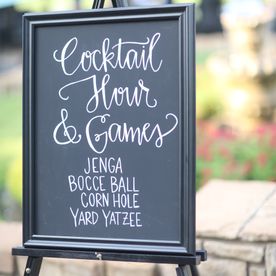 Cocktail
Hour
& Games
JENGA
BOCCE BALL
CORN HOLE
YARD YATZEE